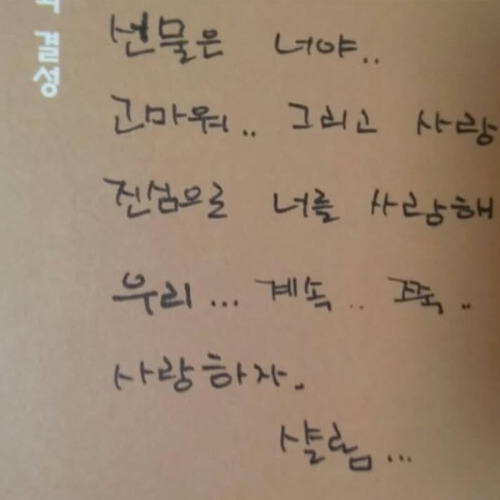 선물은 너야..
고마워.. 그리고 사랑
진심으로 너를 사랑해
우리... 계속.. 쭉..
사랑하자.
샬롬...
결성